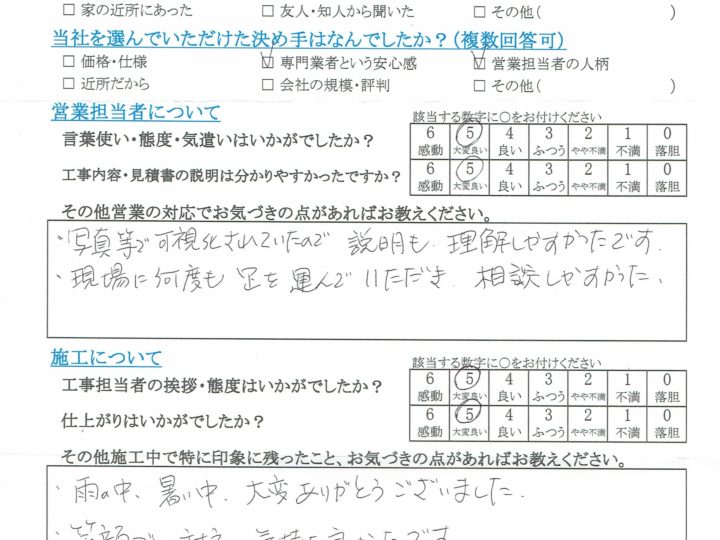 □ 家の近所にあった □ 友人・知人から聞いた □ その他( )
当社を選んでいただけた決め手はなんでしたか？(複数回答可)
□ 価格・仕様 ☑ 専門業者という安心感 ☑ 営業担当者の人柄
□ 近所だから □ 会社の規模・評判 □ その他( )
営業担当者について 該当する数字に○をお付けください
言葉使い・態度・気遣いはいかがでしたか？ 6 5 4 3 2 1 0
感動 大変良い 良い ふつう やや不満 不満 落胆
工事内容・見積書の説明は分かりやすかったですか？ 6 5 4 3 2 1 0
感動 大変良い 良い ふつう やや不満 不満 落胆
その他営業の対応でお気づきの点があればお教えください。
・写真等で可視化されていたので 説明も 理解しやすかったです.
・現場に何度も 足を運んでいただき. 相談しやすかった.
施工について 該当する数字に○をお付けください
工事担当者の挨拶・態度はいかがでしたか？ 6 5 4 3 2 1 0
感動 大変良い 良い ふつう やや不満 不満 落胆
仕上がりはいかがでしたか？ 6 5 4 3 2 1 0
感動 大変良い 良い ふつう やや不満 不満 落胆
その他施工中で特に印象に残ったこと、お気づきの点があればお教えください。
・雨の中、暑い中、大変ありがとうございました.
・笑顔で